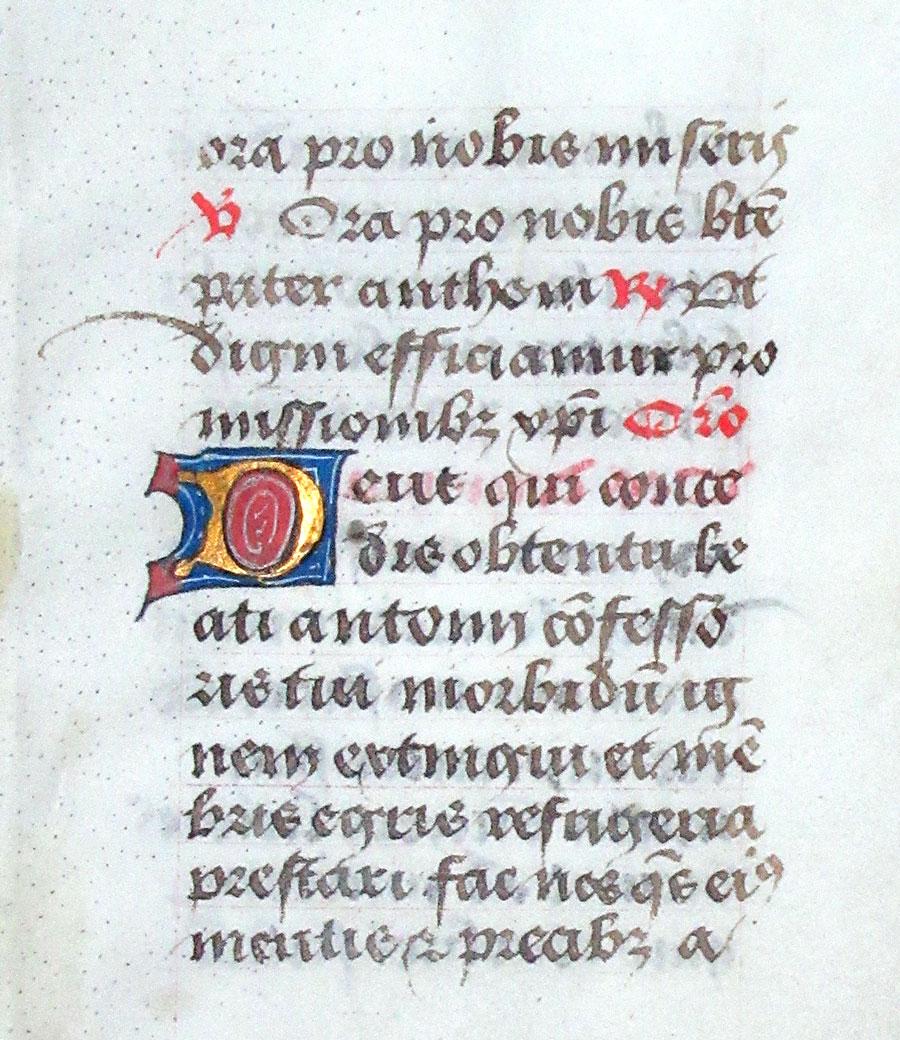 ora pro nobis miseris
℣ Ora pro nobis btē
pater anthoni ℞ Vt
digni efficiamur pro
missionibꝫ xp̄i Or̄o
Deus qui conce
dis obtentu be
ati antonii cōfesso
ris tui morbidū ig
nem extingui et mē
bris egris refrigeria
prestari fac nos q̄s eiꝯ
meritis ⁊ precibꝫ a